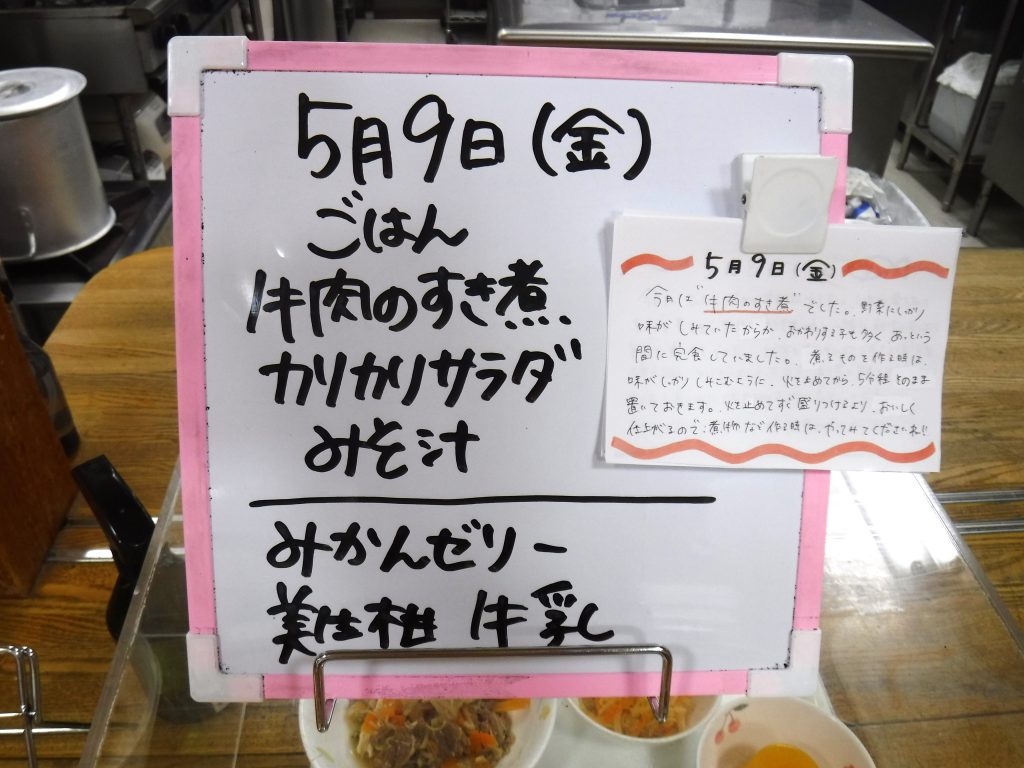 5月9日(金)
ごはん
牛肉のすき煮
カリカリサラダ
みそ汁
みかんゼリー
美生柑 牛乳
5月9日(金)
今日は"牛肉のすき煮"でした。野菜にしっかり
味がしみていたからか、おかわりする子も多く、あっという
間に完食していました。煮るものを作る時は、
味がしっかりしみこむように、火を止めてから、5分程そのまま
置いておきます。火を止めてすぐ盛りつけるより、おいしく
仕上がるので、煮物など作る時は、やってみてくださいね!!